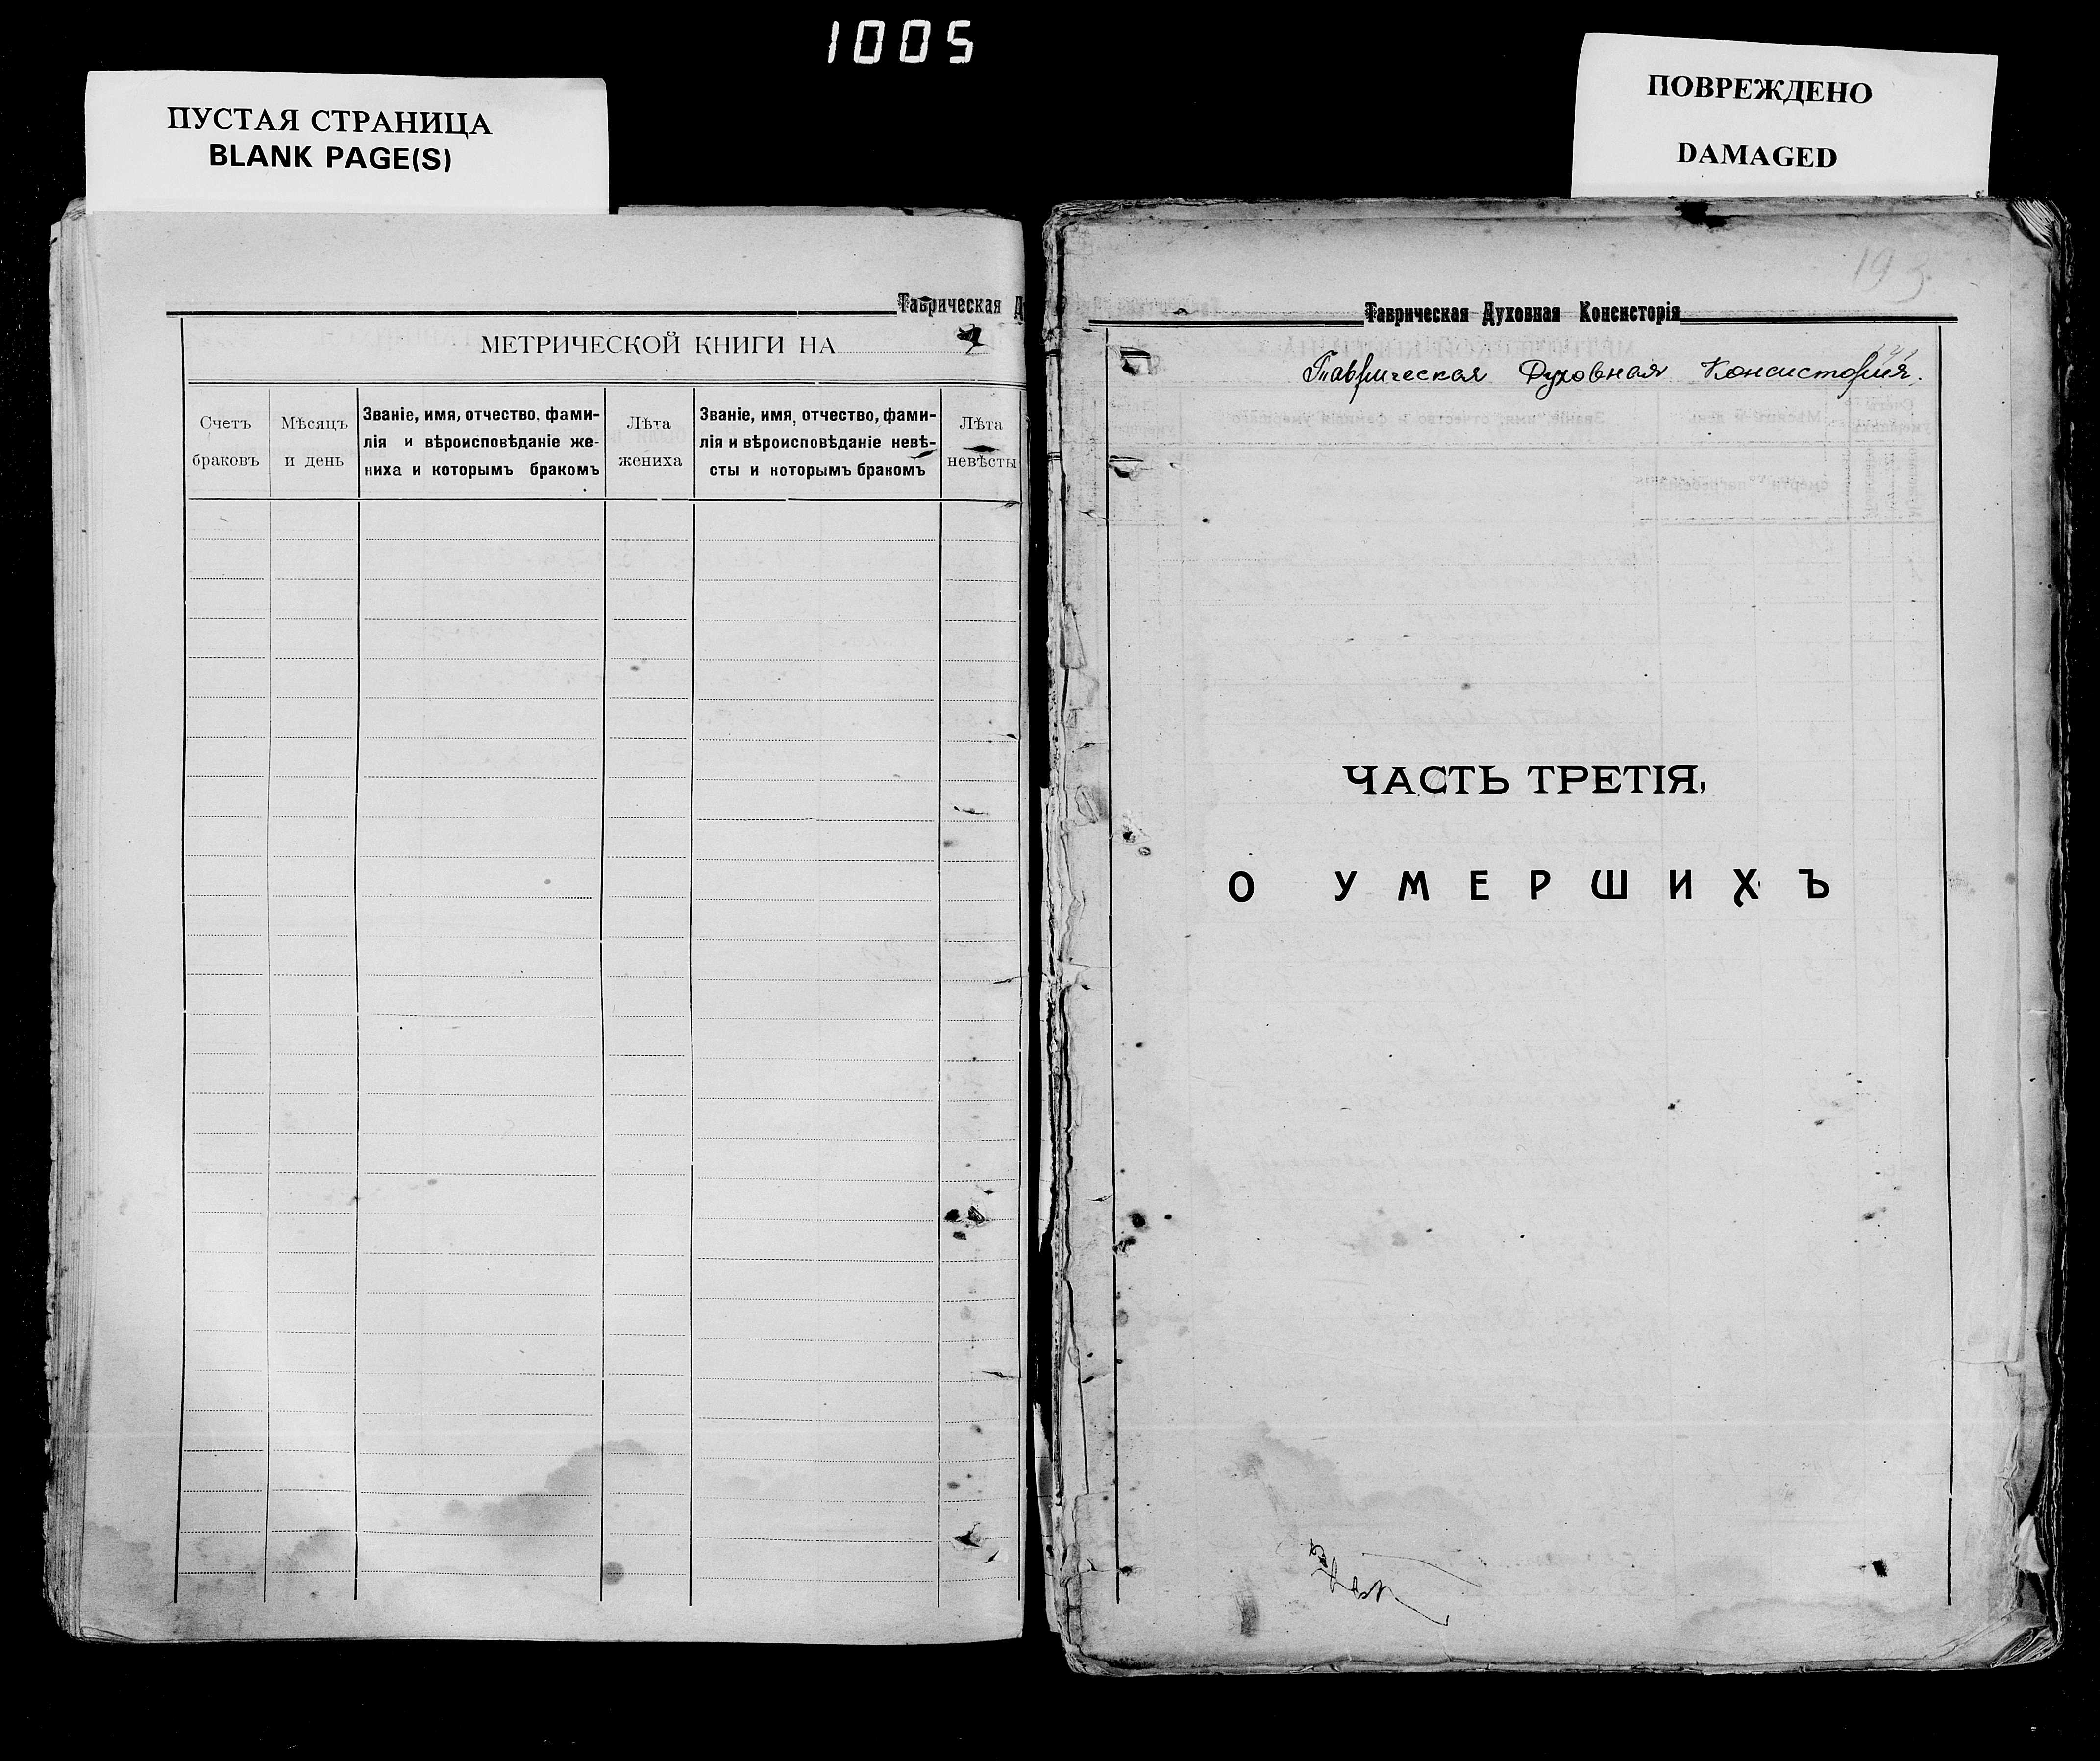 1005
ПУСТАЯ СТРАНИЦА
BLANK PAGE(S)
ПОВРЕЖДЕНО
DAMAGED
Таврическая
МЕТРИЧЕСКОЙ КНИГИ НА
Счетъ
браковъ
Мѣсяцъ
и день
Званіе, имя, отчество, фами-
лія и вѣроисповѣданіе же-
ниха и которымъ бракомъ
Лѣта
жениха
Званіе, имя, отчество, фами-
лія и вѣроисповѣданіе невѣ-
сты и которымъ бракомъ
Лѣта
невѣсты
193
Таврическая Духовная Консисторія
Таврическая Духовная Консистория.
ЧАСТЬ ТРЕТІЯ,
О УМЕРШИХЪ